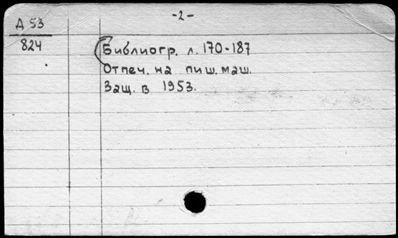 -2-
Д 53
824
(Библиогр. л. 170-187
Отпеч. на пиш. маш.
Защ. в 1953.